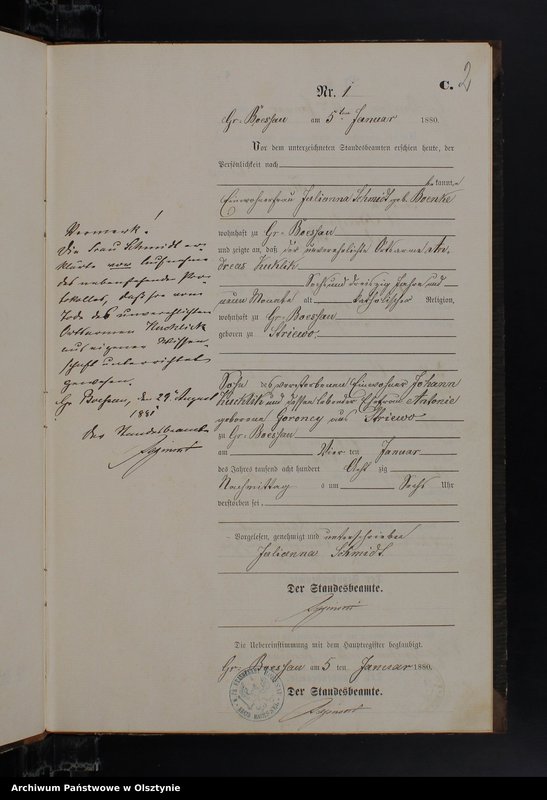 C. 2
Nr. 1
Gr. Boessau am 5ten Januar 1880.
Vor dem unterzeichneten Standesbeamten erschien heute, der
Persönlichkeit nach
bekannt,
Einwohnerfrau Julianna Schmidt geb. Boenke
wohnhaft zu Gr. Boessau
und zeigte an, daß der unverehelichte Ortsarme An-
dreas Kuklik
Sechsunddreißig Jahre und
neun Monate alt, katholischer Religion,
wohnhaft zu Gr. Boessau
geboren zu Striewo,
Sohn des verstorbenen Einwohner Johann
Kuklik und dessen lebender Ehefrau Antonie
geborenen Goroncy aus Striewo
zu Gr. Boessau
am Vier ten Januar
des Jahres tausend acht hundert Acht zig
Nachmittag s um Sechs Uhr
verstorben sei.
Vorgelesen, genehmigt und unterschrieben
Julianna Schmidt
Der Standesbeamte.
Die Uebereinstimmung mit dem Hauptregister beglaubigt.
Gr. Boessau am 5 ten Januar 1880.
Der Standesbeamte.
Vermerk!
Die Frau Schmidt er-
klärte vor Aufnahme
des nebenstehenden Pro-
tokolles, daß sie vom
Tode des unverehelichten
Ortsarmen Kuklick
aus eigener Wissen-
schaft unterrichtet
gewesen.
Gr. Boessau, den 29. August
188
Der Standesbeamte
Archiwum Państwowe w Olsztynie